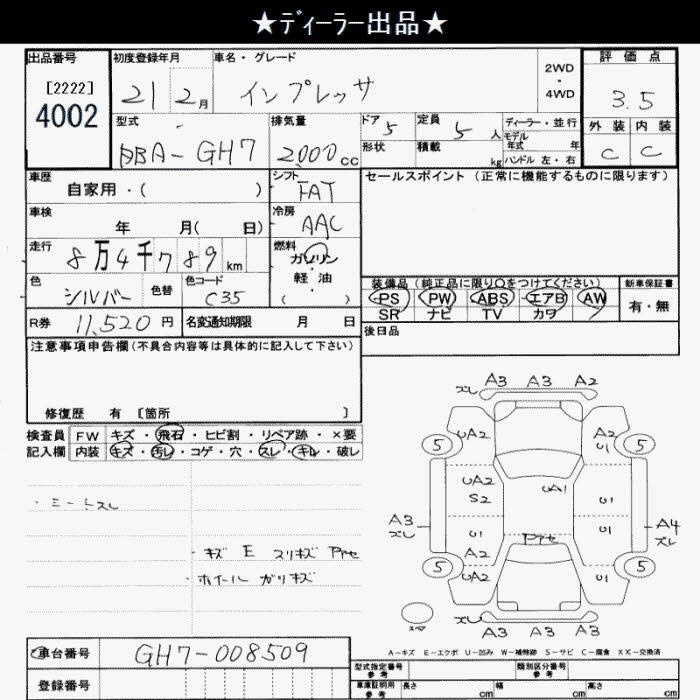 ★ディーラー出品★
出品番号 初度登録年月 車名・グレード 2WD・4WD 評価点
[2222] 21 2月 インプレッサ 3.5
4002
型式 排気量 ドア 5 定員 5人 ディーラー・並行 外装 内装
DBA-GH7 2,000cc 形状 積載 kg モデル年式 年 C C
ハンドル 左・右
車歴 シフト セールスポイント (正常に機能するものに限ります)
自家用・( ) FAT
車検 冷房
年 月( 日) AAC
走行 燃料
8万4千789km ガソリン・軽油
色 色替 色コード ( ・ )
シルバー C35
装備品 (純正品に限り○をつけてください) 新車保証書
PS PW ABS エアB AW 有・無
SR ナビ TV カワ
R券 11,520円 名変通知期限 月 日 後日品
注意事項申告欄(不具合内容等は具体的に記入して下さい)
修復歴 有 [箇所 ]
検査員 FW キズ・飛石・ヒビ割・リペア跡・×要
記入欄 内装 キズ・汚レ・コゲ・穴・スレ・キレ・破レ
・ミートスレ
・キズ E スリキズ アセ
・ホイール ガリキズ
ズレ A3 A3 A2
5 UA2 A2 U1 5
UA2 S2 UA1 U1
A3 ズレ U1 A2 アセ U1 A4 ズレ
5 UA2 U1 5
スペア ズレ A3 A3 A3
A-キズ E-エクボ U-凹み W-補修跡 S-サビ C-腐食 XX-交換済
車台番号 GH7-008509
登録番号
型式指定番号 参考 類別区分番号 参考
車庫証明用 参考 長さ cm 幅 cm 高さ cm